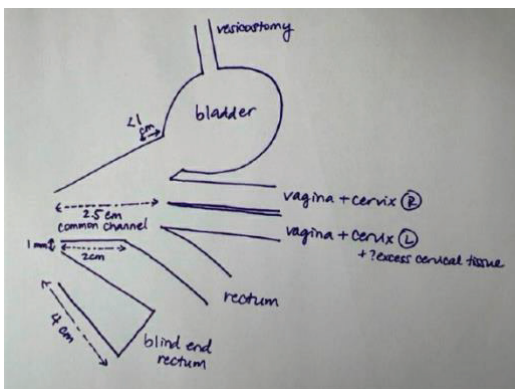 vesicostomy
<1
cm
bladder
vagina + cervix Ⓡ
2.5 cm
common channel
vagina + cervix Ⓛ
+ ?excess cervical tissue
1 mm
2cm
rectum
4 cm
blind end
rectum